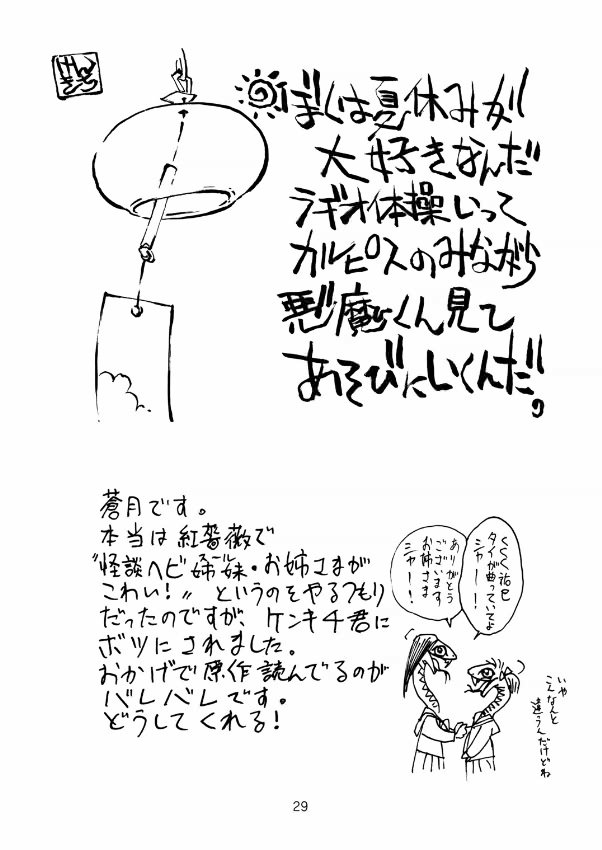 ぼくは夏休みが
大好きなんだ
ラヂオ体操いって
カルピスのみながら
悪魔くん見て
あそびにいくんだ。
蒼月です。
本当は紅薔薇で
"怪談ヘビ姉妹・お姉さまが
こわい!"というのをやるつもり
だったのですが、ケンキチ君に
ボツにされました。
おかげで原作読んでるのが
バレバレです。
どうしてくれる!
くくく祐巳
タイが曲っていてよ
シャーー!
ありがとう
ございます
お姉さま
シャーー!!
いや
こんなんと
違うんだけどね
29